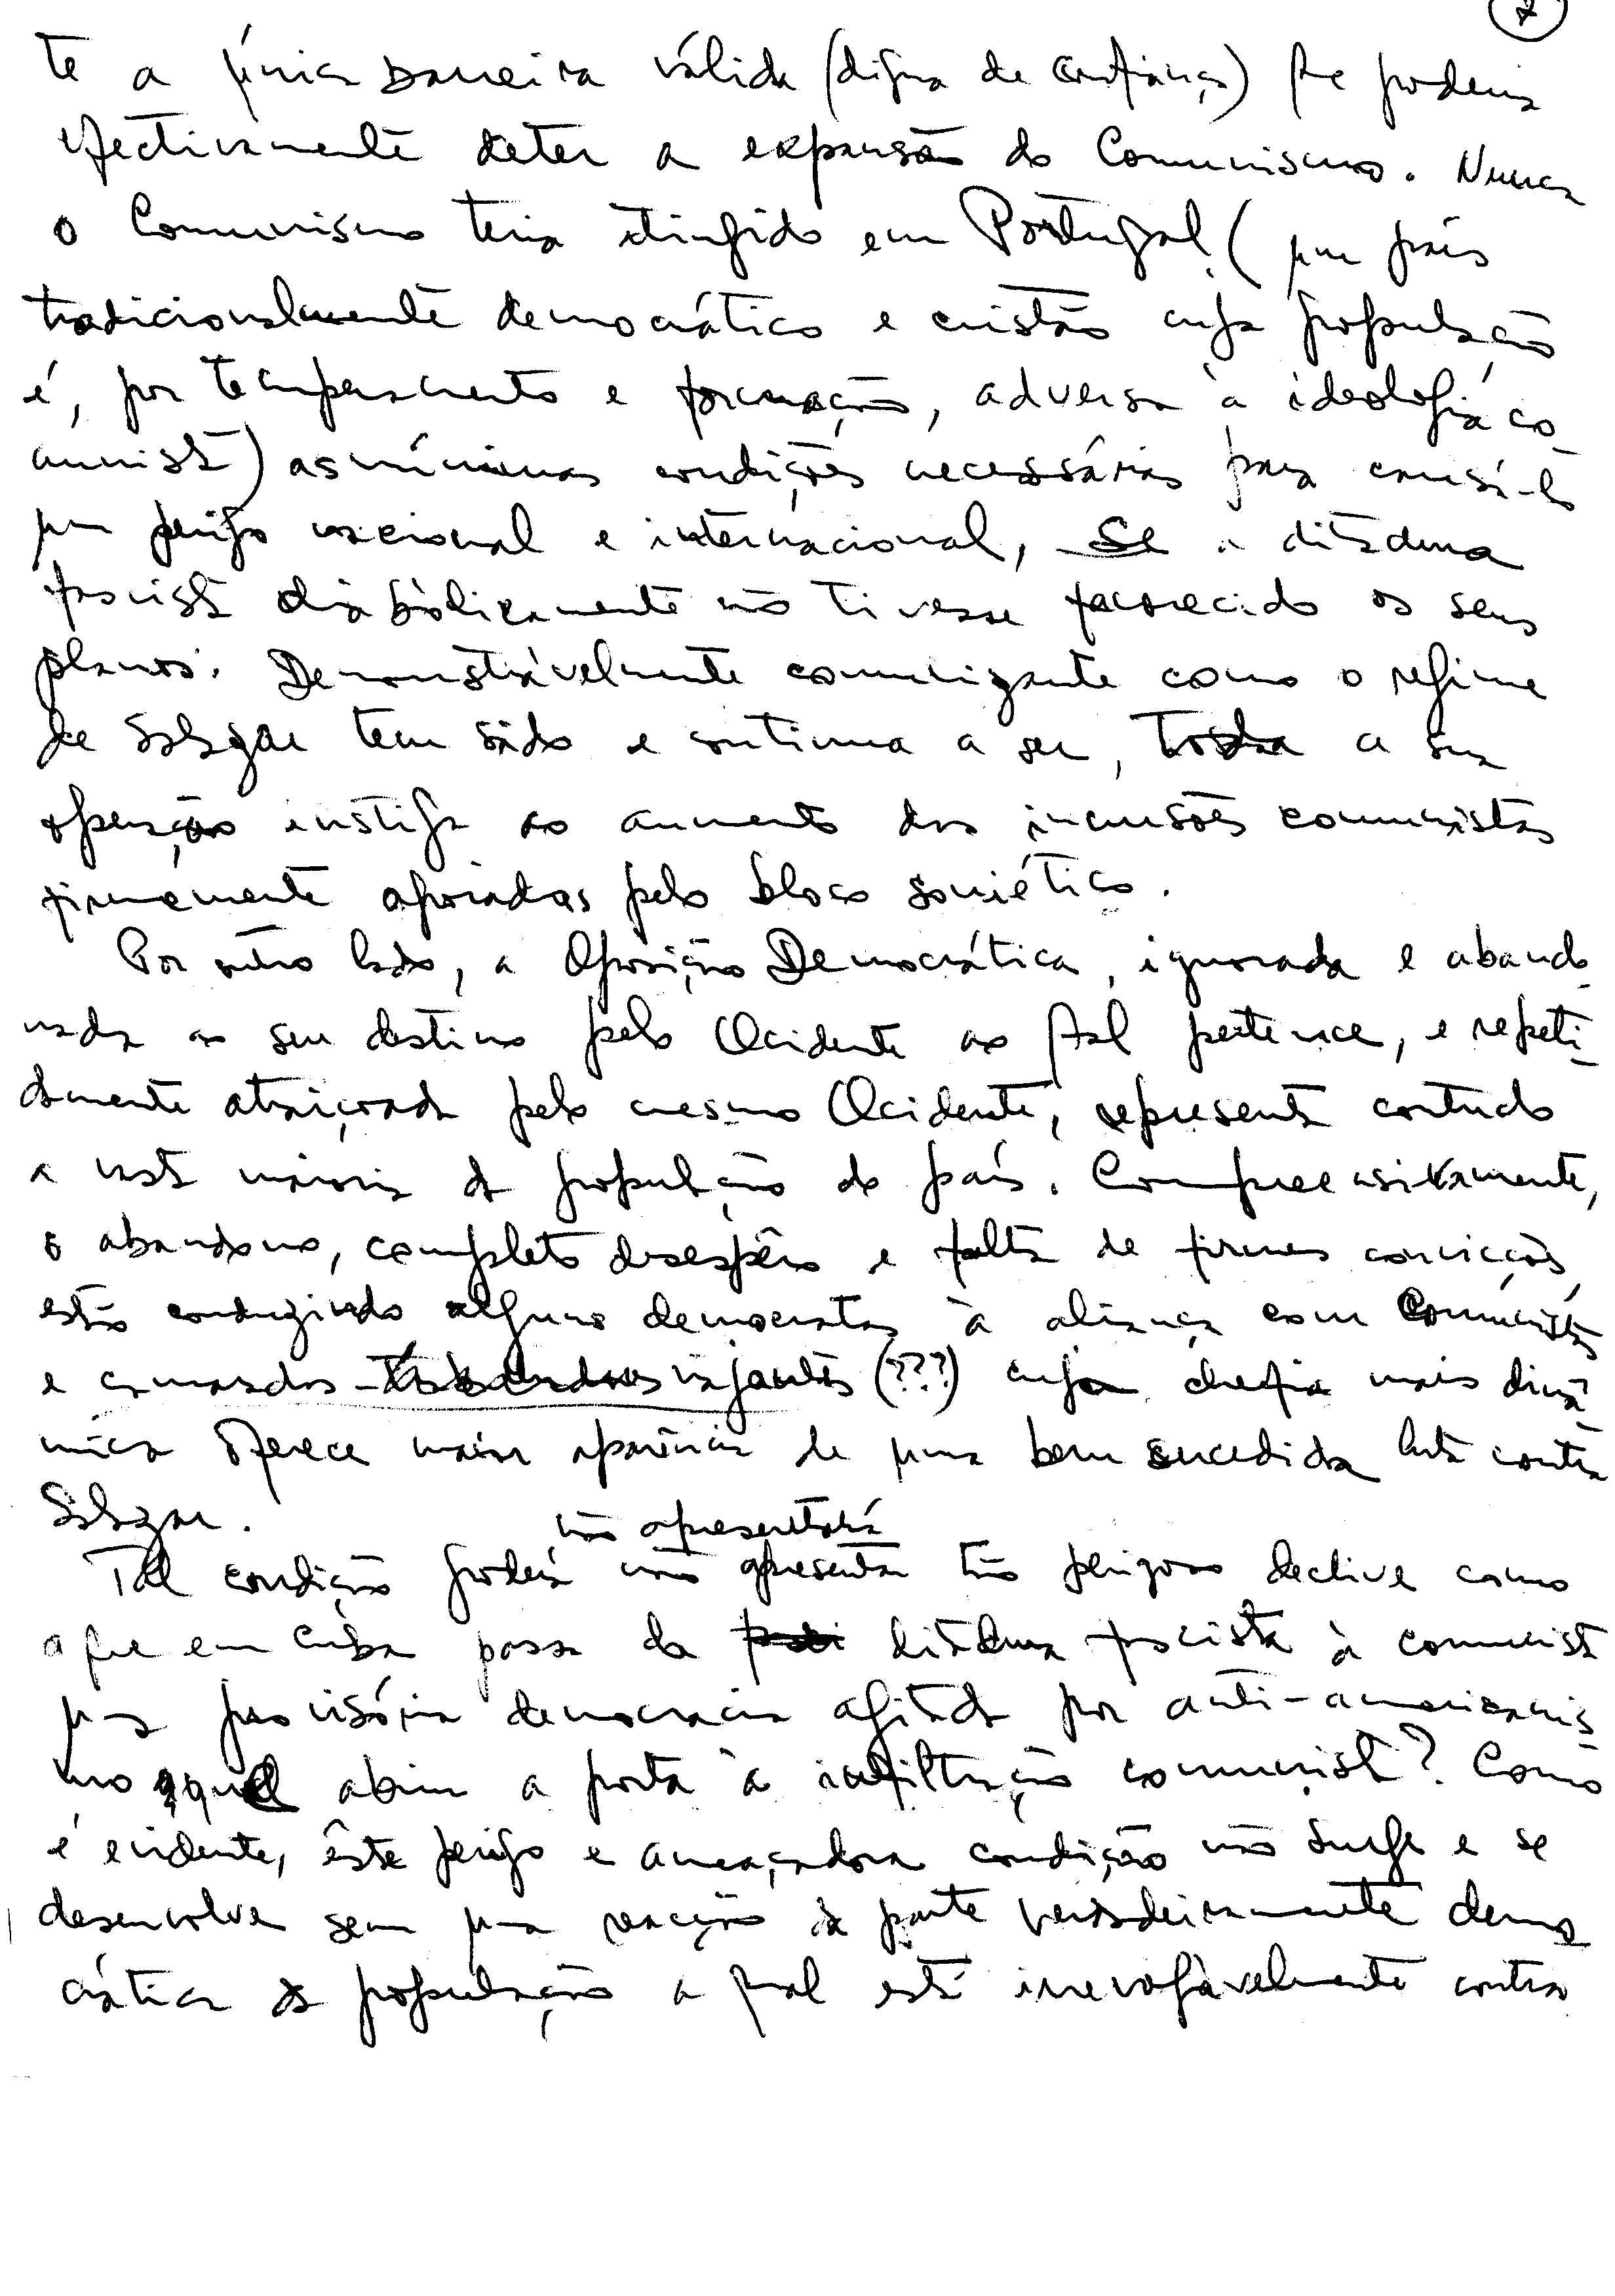 7
te a única barreira válida (digna de confiança) que poderia
efectivamente deter a expansão do Comunismo. Nunca
o Comunismo teria atingido em Portugal (um país
tradicionalmente democrático e cristão cuja população
é, por temperamento e formação, adversa à ideologia co-
munista) as mínimas condições necessárias para
um perigo nacional e internacional, se a ditadura
fascista diabòlicamente não tivesse favorecido os seus
planos. Demonstràvelmente comunizante como o regime
de Salazar tem sido e continua a ser, toda a sua
operação instiga ao aumento das incursões comunistas
firmemente apoiadas pelo bloco soviético.
Por outro lado, a Oposição Democrática, ignorada e abando-
nada ao seu destino pelo Ocidente ao qual pertence, e repeti-
damente atraiçoada pelo mesmo Ocidente, representa contudo
a vasta maioria da população do país. Compreensivamente,
o abandono, completo desespêro e falta de firmes convicções,
estão conduzindo alguns democratas à aliança com Comunistas
e camaradas viajantes (???) cuja chefia mais dinâ-
mica oferece maior aparência de uma bem sucedida luta contra
Salazar.
não apresentará
Tal condição poderá não apresentar tão perigoso declive como
a que em Cuba passa da ditadura fascista à comunista
uma provisória democracia agitada por anti-americanis-
mo abriu a porta à infiltração comunista? Como
é evidente, êste perigo e ameaçadora condição não surge e se
desenvolve sem uma reacção da parte verdadeiramente demo-
crática da população a qual está irrevogàvelmente contra